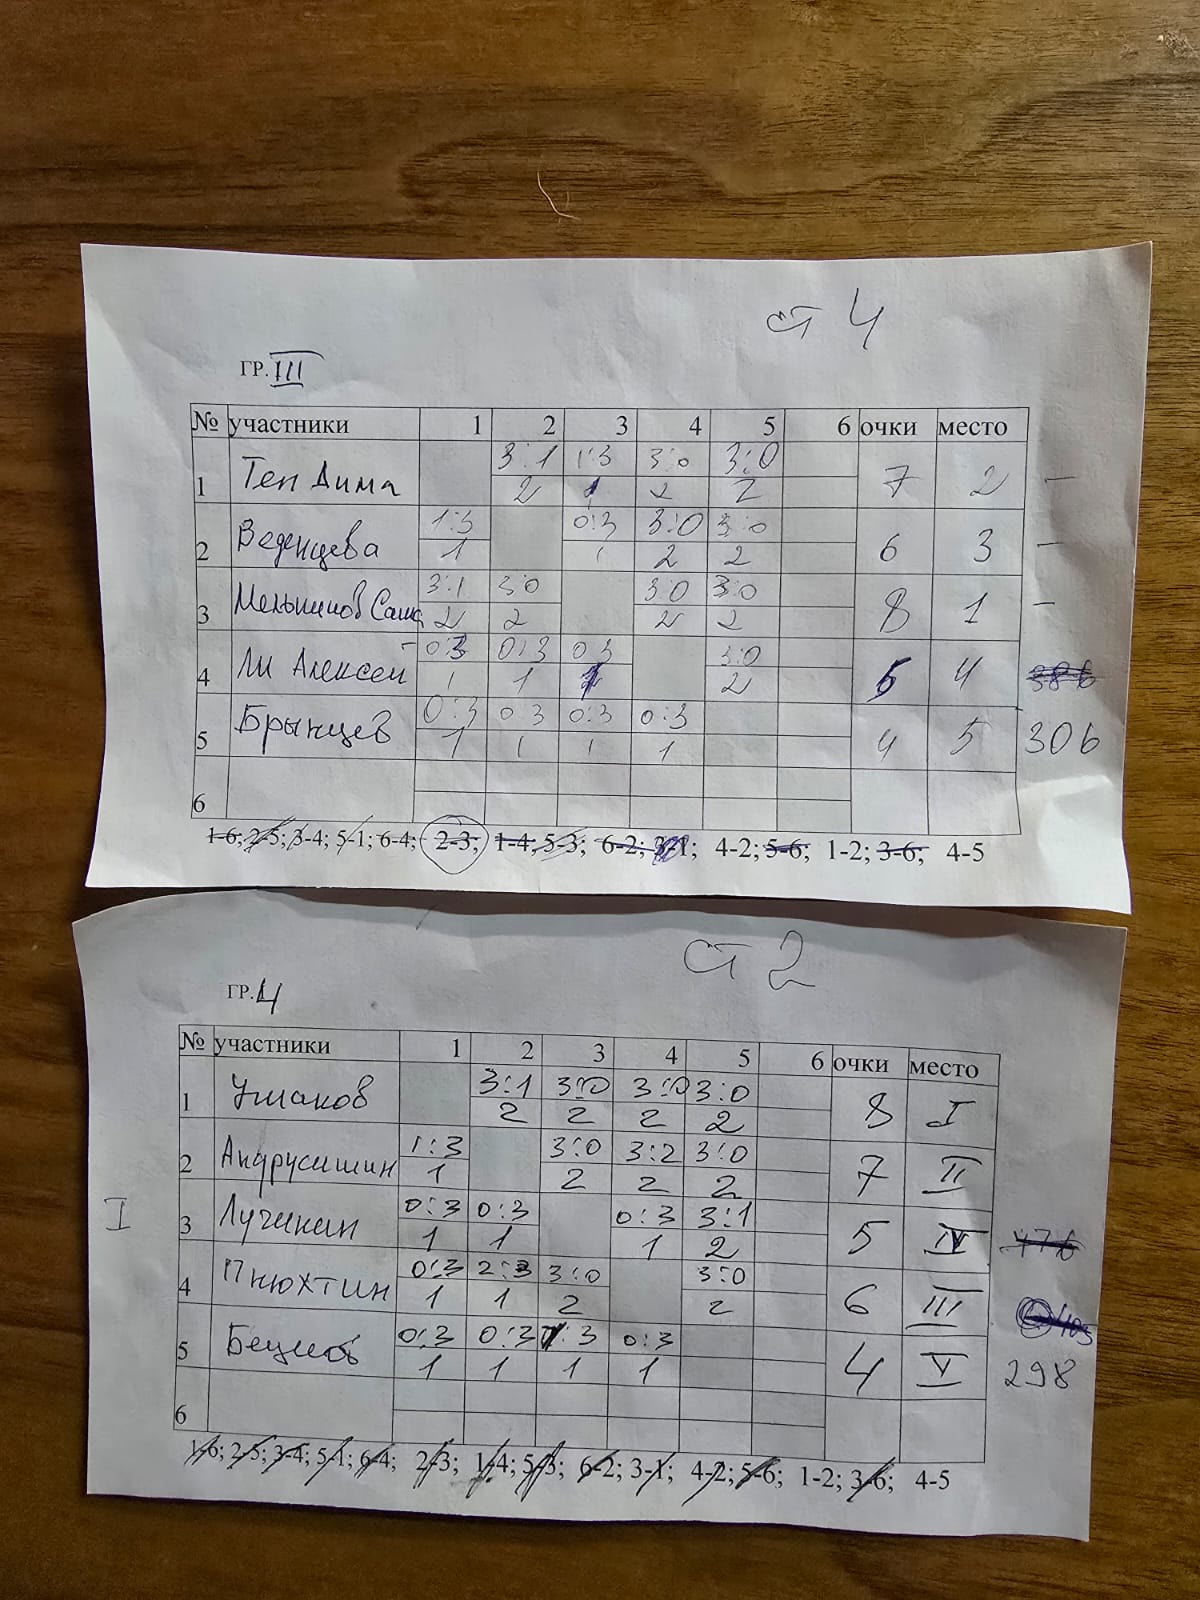 ст 4
ГР. III
№ участники 1 2 3 4 5 6 очки место
1 Тен Дима 3:1 1:3 3:0 3:0 7 2 —
2 1 2 2
2 Веденцева 1:3 0:3 3:0 3:0 6 3 —
1 1 2 2
3 Мельников Саша 3:1 3:0 3:0 3:0 8 1 —
2 2 2 2
4 Ли Алексей 0:3 0:3 0:3 3:0 5 4
1 1 1 2
5 Брынцев 0:3 0:3 0:3 0:3 4 5 306
1 1 1 1
6
1-6; 2-5; 3-4; 5-1; 6-4; 2-3; 1-4; 5-3; 6-2; 3-1; 4-2; 5-6; 1-2; 3-6; 4-5
ст 2
ГР. 4
№ участники 1 2 3 4 5 6 очки место
1 Ушаков 3:1 3:0 3:0 3:0 8 I
2 2 2 2
2 Андрусишин 1:3 3:0 3:2 3:0 7 II
1 2 2 2
I
3 Лучинин 0:3 0:3 0:3 3:1 5 IV
1 1 1 2
4 Пнюхтин 0:3 2:3 3:0 3:0 6 III
1 1 2 2
5 0:3 0:3 1:3 0:3 4 V 298
1 1 1 1
6
1-6; 2-5; 3-4; 5-1; 6-4; 2-3; 1-4; 5-3; 6-2; 3-1; 4-2; 5-6; 1-2; 3-6; 4-5